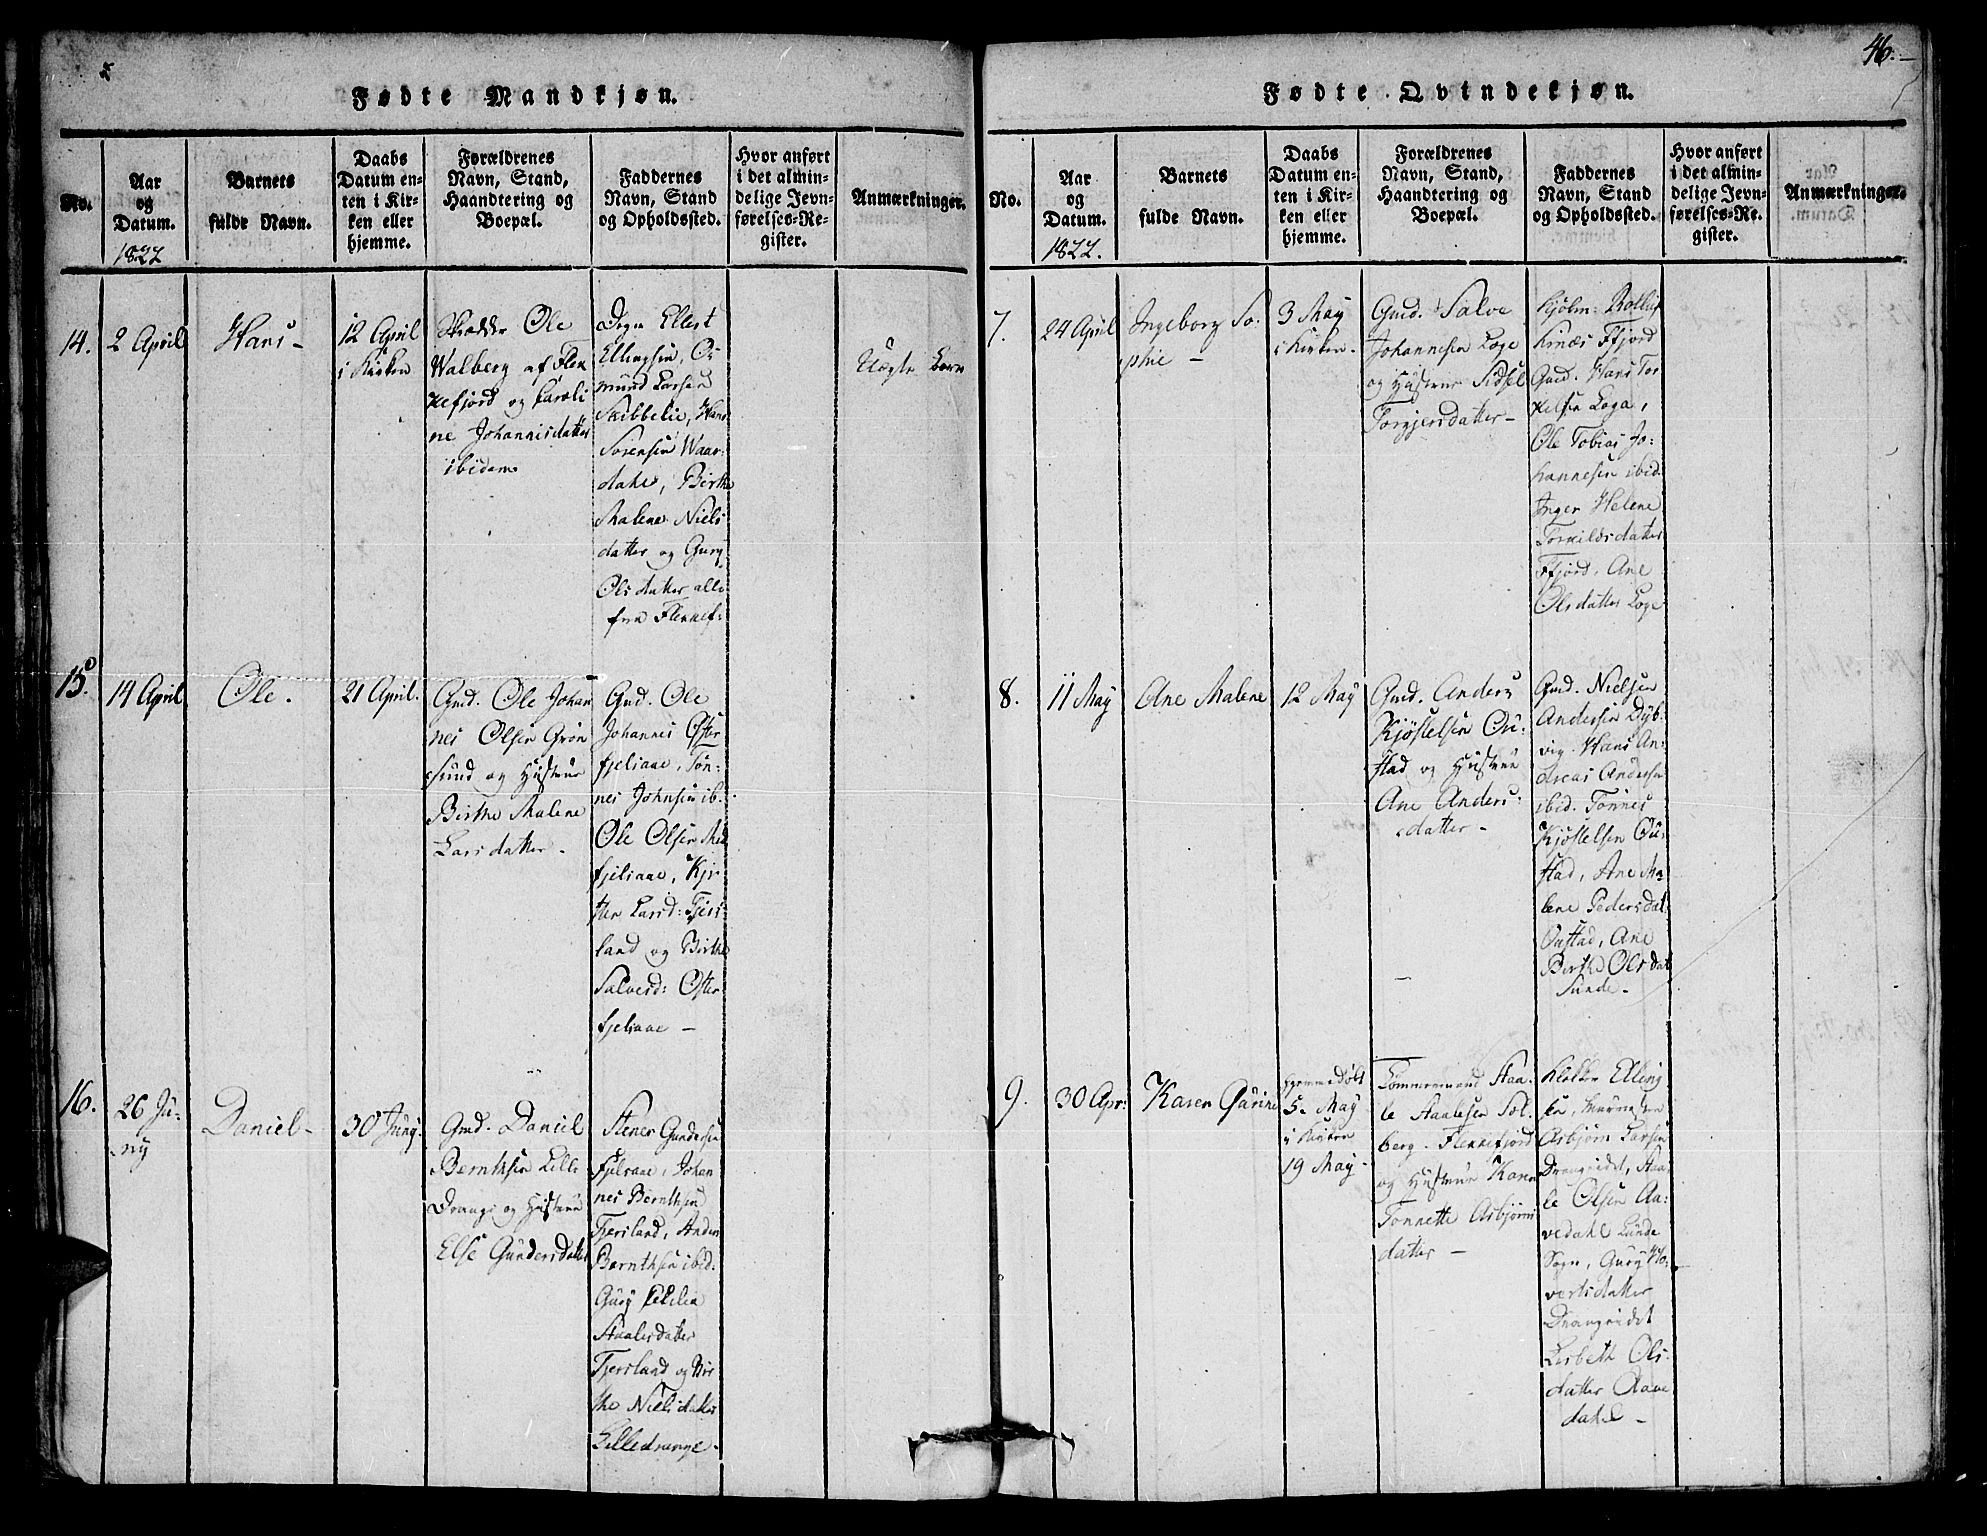 46.
Fødte Mandkjøn.
No.
Aar
og
Datum.
1822
Barnets
fulde Navn.
Daabs
Datum en-
ten i Kir-
ken eller
hjemme.
Forældrenes
Navn, Stand,
Haandtering og
Boepæl.
Faddernes
Navn, Stand
og Opholdssted.
Hvor anført
i det almin-
delige Jevn-
førelses-Re-
gister.
Anmærkninger.
14.
2 April
Hans -
12 April
i Kirken
Skrædder Ole
Walberg af Flek
kefjord og Karoli
ne Johannisdatter
ibidem
Degn Ellest
Ellingsen, Os
mund Larsen
Skibbelie, Hans
Sørensen Waar-
dahl, Birthe
Malene Niels
datter og Gury
Olsdatter alle
fra Flekkef:
Uægte Barn
15.
14 April
Ole.
21 April.
Gmd. Ole Johan
nes Olsen Grøn
sund og Hustrue
Birthe Malene
Larsdatter -
Gmd. Ole
Johannes Øster
fjeliaae, Tøn-
nes Johnsen ib.
Ole Olsen Med
fjeliaae, Kjr
sten Larsd: Fjers-
land og Birthe
Salvesd: Øster
fjeliaae -
16.
26 Ju-
ny
Daniel -
30 Juny.
Gmd. Daniel
Berntsen Lille
Drange og Hustrue
Else Gundersdatter
Stener Gundersen
Fjeliaae, Johan
nes Berntsen
Fjersland, Anders
Berntsen ibid:
Gury Cecilia
Staalesdatter
Fjersland og Bir
the Nielsdatter
Lilledrange -
Fødte Qvindekjøn.
No.
Aar
og
Datum.
1822.
Barnets
fulde Navn.
Daabs
Datum en-
ten i Kir-
ken eller
hjemme.
Forældrenes
Navn, Stand,
Haandtering og
Boepæl.
Faddernes
Navn, Stand
og Opholdssted.
Hvor anført
i det almin-
delige Jevn-
førelses-Re-
gister.
Anmærkninger.
7.
24 April
Ingeborg So-
phie -
3 May
i Kirken -
Gmd. Salve
Johannesen Loge
og Hustrue Sidsel
Torgjersdatter -
Kjøbm:
Ffjord
Gmd. Hans Tor
kelsen Loga,
Ole Tobias Jo-
hannesen ibid:
Inger Helene
Torkildsdatter
Ffjord, Ane
Olsdatter Loge
8.
11 May
Ane Malene
12 May
Gmd. Anders
Kjøstelsen Ou-
stad og Hustrue
Ane Anders-
datter -
Gmd. Nielsen
Andersen Dyb-
vig. Hans An-
dreas Andersen
ibid. Tønnes
Kjøstelsen Ou-
stad, Ane Ma-
lene Pedersdat:
Oustad, Ane
Berthe Olsdat
Sunde -
9.
30 Apr:
Karen Qurine
hjemmedøbt
5. May
i Kirken
19 May -
Tømmermand Staa-
le Staalesen Sol-
berg - Flekkefjord
og Hustrue Karen
Tonnette Asbjørns
datter -
Klokker Elling
sen,
Asbjørn Larsen
Drangeidet, Staa-
le Olsen Aa-
vedahl Lunde
Sogn, Gury
vertsdatter
Drangeidet
Lisbeth Ols-
datter Aave
dahl -